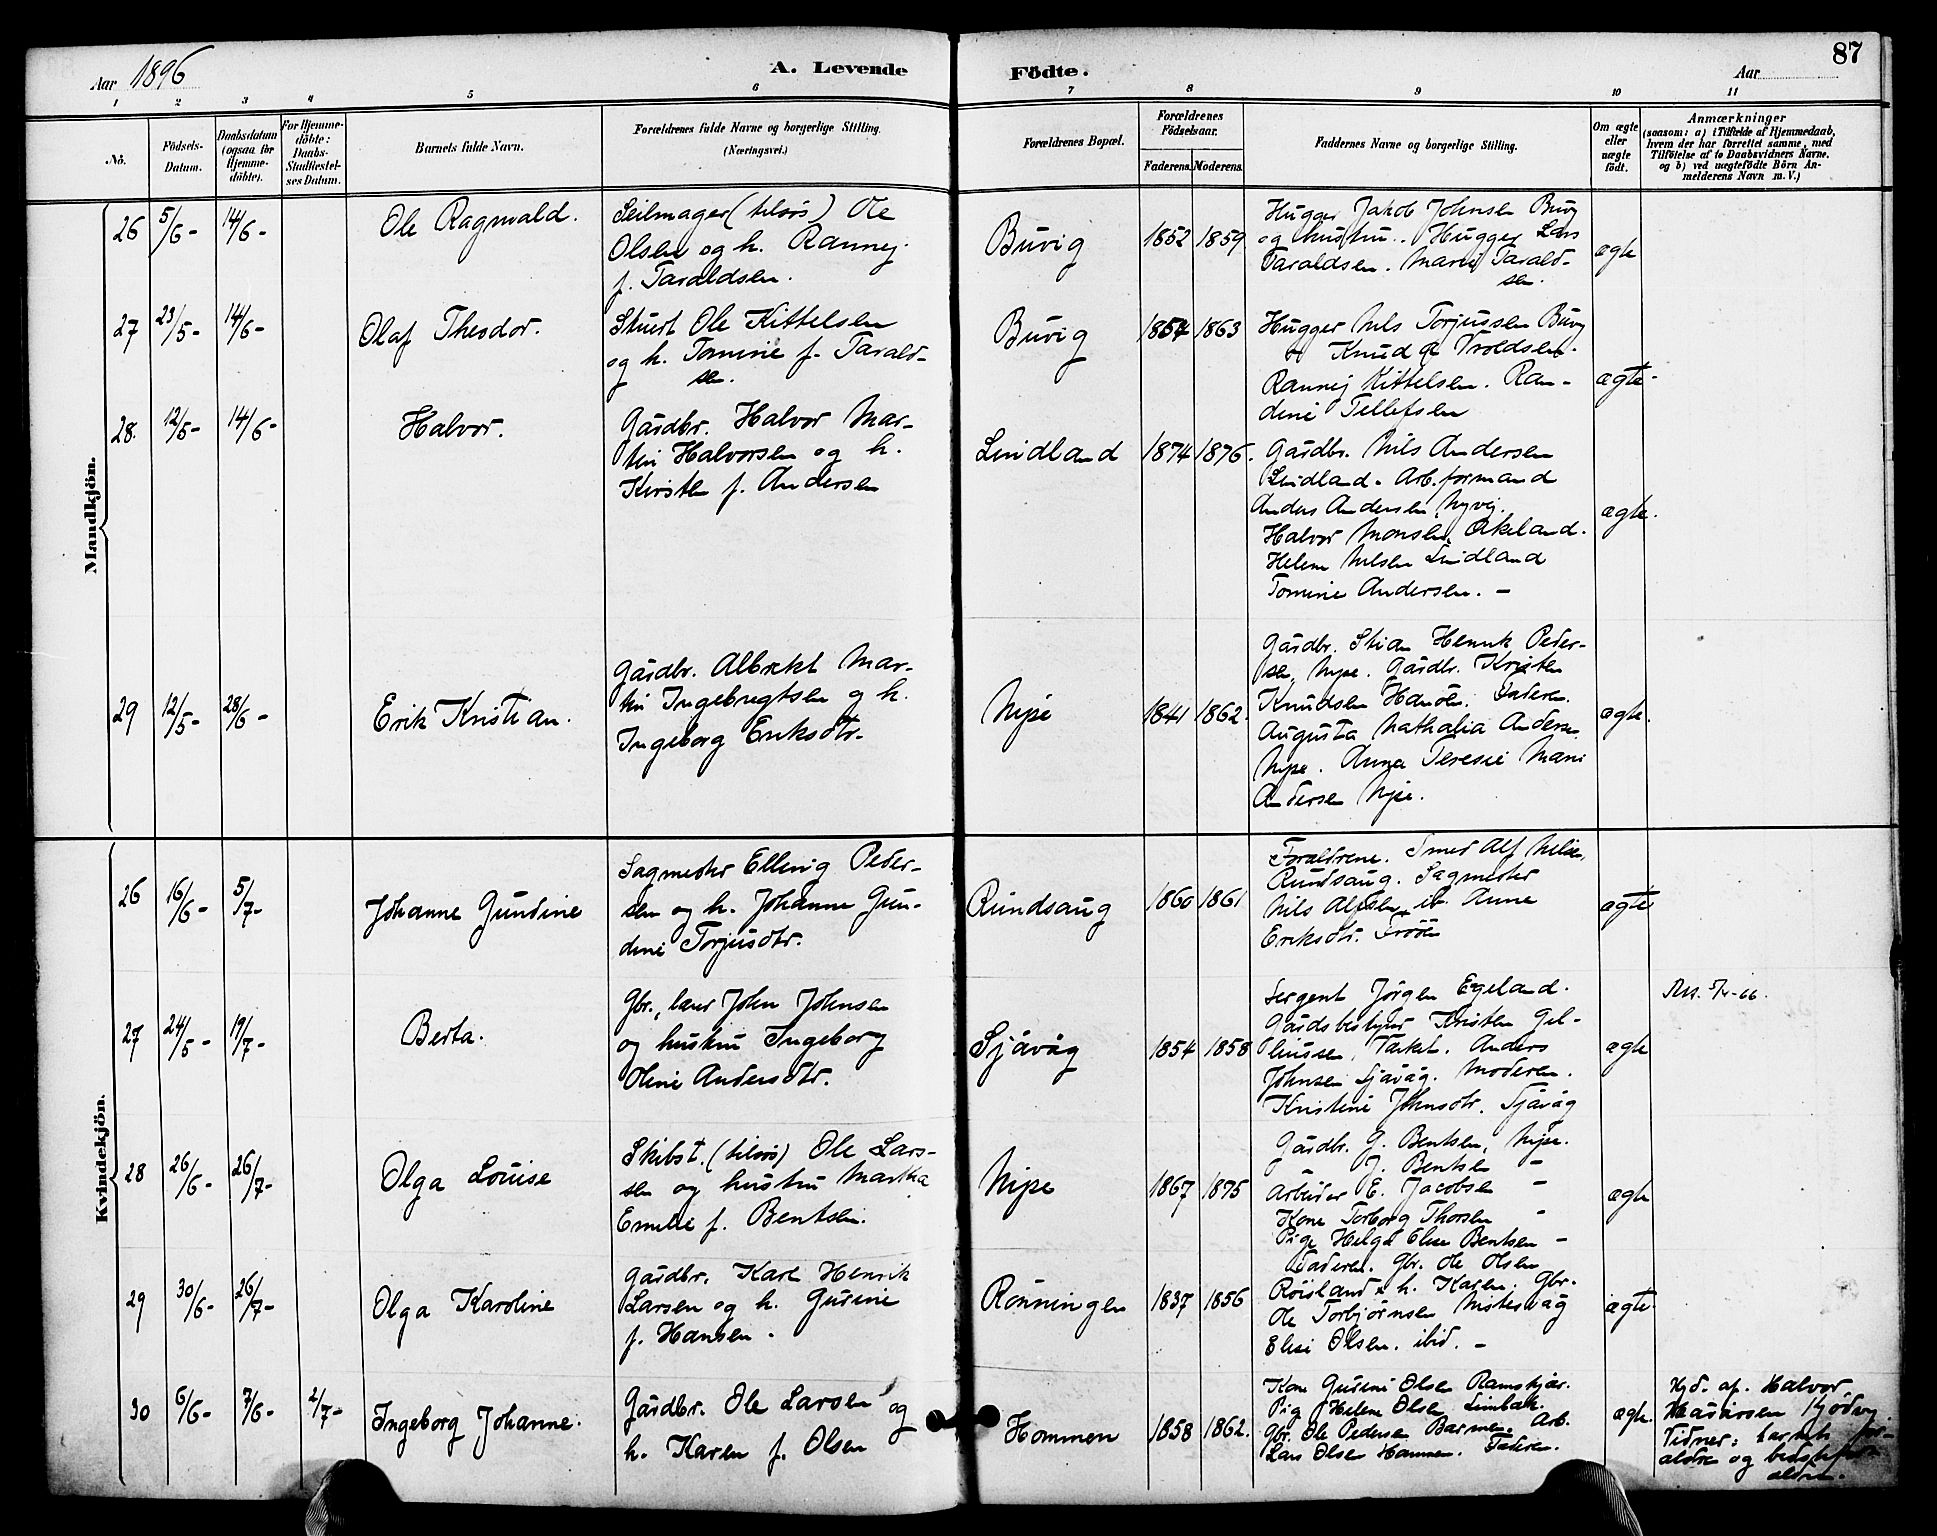 Aar 1896
A. Levende
Födte.
Aar
87
1 2 3 4 5 6 7 8 9 10 11
No.
Födsels-
Datum.
Daabsdatum
(ogsaa for
Hjemme-
döbte).
For Hjemme-
döbte:
Daabs-
Stadfæstel-
ses Datum.
Barnets fulde Navn.
Forældrenes fulde Navne og borgerlige Stilling.
(Næringsvei.)
Forældrenes Bopæl.
Forældrenes
Födselsaar.
Faderens. Moderens.
Faddernes Navne og borgerlige Stilling.
Om ægte
eller
uægte
födt.
Anmærkninger
(saasom: a) i Tilfælde af Hjemmedaab,
hvem der har forrettet samme, med
Tilföielse af to Daabsvidners Navne.
og b) ved uægtefödte Börn An-
melderens Navn m. V.)
Mandkjön.
26 5/6- 14/6- Ole Ragnvald.
Seilmager (tilsøs) Ole
Olsen og h. Rannej
f. Taraldsen.
Buvig 1852 1859
Hugger Jakob Johnsen Buvg
og hustru. Hugger Lars
Taraldsen. Marie Tarald-
sen.
ægte
27 23/5- 14/6- Olaf Theodor.
Stuert Ole Kittelsen
og h. Tomine f. Tarald-
sen.
Buvig 1854 1863
Hugger Nils Torjussen Buvg
Knud Vroldsen.
Rannej Kittelsen. Ran-
dine Tellefsen
ægte-
28. 12/5- 14/6- Halvor.
Gaardbr. Halvor Mar-
tin Halvorsen og h.
Kirsten f. Andersen
Lindland 1874 1876.
Gaardbr. Nils Andersen
Lindland. Arb.formand
Anders Andersen Nyvig.
Halvor Monsen Økeland.
Helene Nilsen Lindland
Tomine Andersen. -
ægte.
29 12/5- 28/6- Erik Kristian.
Gaardbr. Albrekt Mar-
tin Ingebregtsen og h.
Ingeborg Eriksdtr.
Nipe 1841 1862.
Gaardbr. Stian Henrik Peder-
sen, Nipe. Gaardbr. Kristen
Knudsen Faderen.
Augusta Nathalia Anderse
Nipe. Anna Teresie Marie
Andersen Nipe.
ægte.
Kvindekjön.
26 16/6- 5/7- Johanne Gundine
Sagmester Elling Peder-
sen og h. Johanne Gun-
dine Torjusdtr.
Rundsaug 1860 1861
Forældrene. Smed Alf Nilsen,
Rundsaug. Sagmester
Nils Alfsen ib. Anne
Eriksdtr.
ægte
27 24/5- 19/7- Berta.
Gbr., John Johnsen
og hustru Ingeborg
Oline Andersdtr.
Sjåvåg 1854 1858
Sergent Jørgen Egeland.
Gaardsbestyrer Kristen Gil-
Anders
Johnsen Sjåvåg. Moderen.
Kristine Johnsdtr. Sjåvåg
ægte
28 26/6- 26/7- Olga Louise
Skibst. (tilsøs) Ole Lars-
sen og hustru Martha
Emelie f. Bentsen.
Nipe 1867 1875
Gårdbr. G. Bentsen, Nipe.
J. Bentsen -
Arbeider E. Jacobsen -
Kone Torborg Thorsen -
Pige Helga Elise Bentsen -
ægte
29 30/6- 26/7- Olga Karoline
Gårdbr. Karl Henrik
Larsen og h. Gurine
f. Hansen.
Rønningen 1837 1856
Faderen. Gbr. Ole Olsen
Røisland & h. Karen. Gbr.
Ole Torbjørnsen
Elise Olsen. ibid. -
ægte
30 6/6- 7/6- 2/7- Ingeborg Johanne.
Gårdbr. Ole Larsen og
h. Karen f. Olsen
Hommen 1858 1862.
Kone Gurine Olsen Ramskjær.
Pig Helene Olsen
Gbr. Ole Pedersen Arb.
Lars Olsen Hommen. Faderen.
ægte.
Hjd. af Halvor
Vidner: barnets for-
ældre og bedstefor-
ældre.